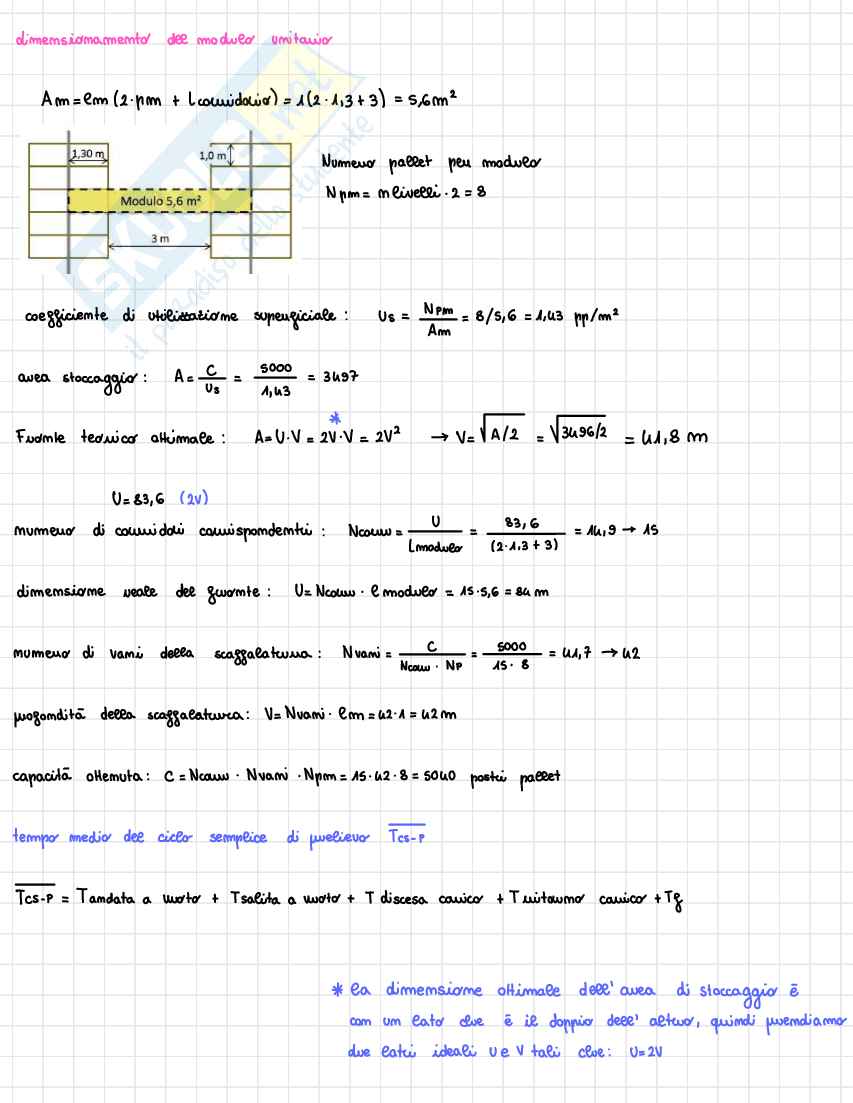 dimensionamento del modulo unitario
Am = lm (2·pm + Lcorridoio) = 1(2·1,3+3) = 5,6m²
1,30 m
1,0 m
Modulo 5,6 m²
3 m
Numero pallet per modulo
Npm = n livelli · 2 = 8
coefficiente di utilizzazione superficiale : Us = Npm/Am = 8/5,6 = 1,43 pp/m²
area stoccaggio : A = C/Us = 5000/1,43 = 3497
*
Fronte teorico ottimale : A = U·V = 2V·V = 2V² → V = √A/2 = √3496/2 = 41,8 m
U = 83,6 (2V)
numero di corridoi corrispondenti : Ncorr = U/Lmodulo = 83,6/(2·1,3+3) = 14,9 → 15
dimensione reale del fronte : U = Ncorr · lmodulo = 15·5,6 = 84 m
numero di vani della scaffalatura : Nvani = C/(Ncorr · Np) = 5000/(15 · 8) = 41,7 → 42
profondità della scaffalatura : V = Nvani · lm = 42·1 = 42 m
capacità ottenuta : C = Ncorr · Nvani · Npm = 15·42·8 = 5040 posti pallet
tempo medio del ciclo semplice di prelievo Tcs-P
Tcs-P = Tandata a vuoto + Tsalita a vuoto + T discesa carico + Tritorno carico + Tf
* la dimensione ottimale dell' area di stoccaggio è
con un lato che è il doppio dell' altro, quindi prendiamo
due lati ideali U e V tali che : U=2V
SKUOLA.net
il paradiso dello studente